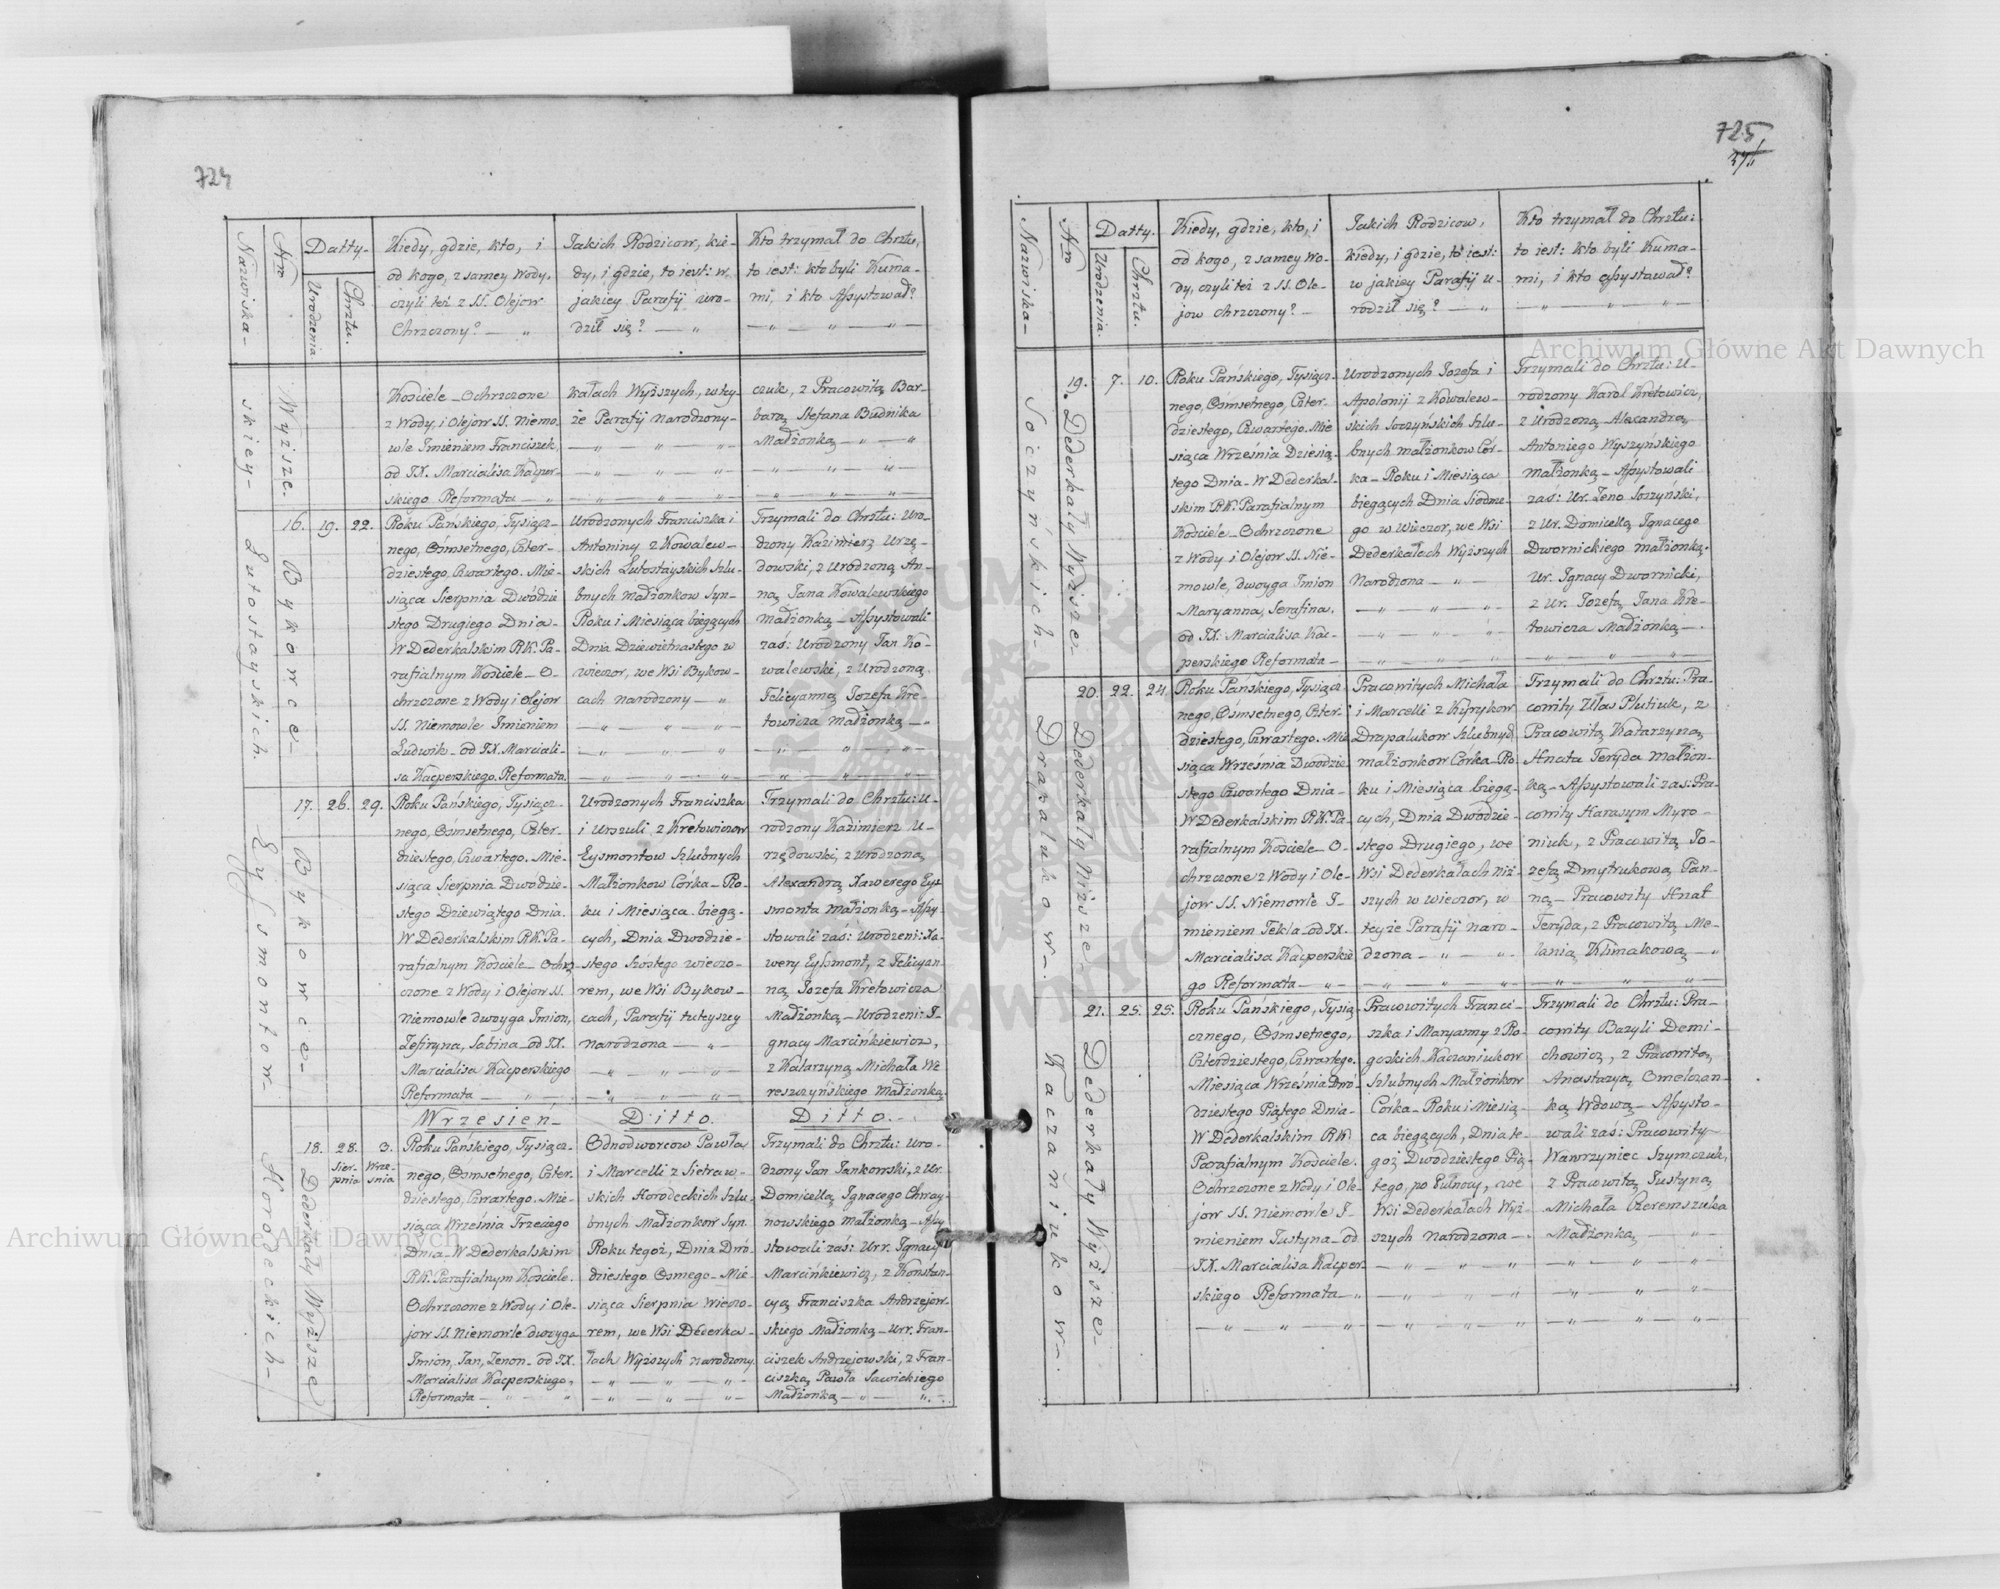 724
Nazwiska
Nro
Datty.
Urodzenia.
Chrztu.
Kiedy, gdzie, kto, i
od kogo, z samey Wody,
czyli też z SS. Olejow
Chrzczony? — „
Jakich Rodzicow, kie-
dy, i gdzie, to iest: w
jakiey Parafij uro-
dził się? — „
Kto trzymał do Chrztu,
to iest: kto byli Kuma-
mi, i kto Assystował?
— „ — „ — „ —
skiey-
Wyższe.
Kościele Ochrzczone
z Wody, i Olejow SS. Niemo-
wle Imieniem Franciszek,
od JX. Marcialisa Kacper-
skiego Reformata — „
kałach Wyższych, w tey-
że Parafij narodzony-
czuk, z Pracowitą Bar-
barą, Stefana Budnika
Małżonką — „ — „
Lutostayskich.
16.
Bykowce-
19.
22.
Roku Pańskiego, Tysiącz-
nego, Osmsetnego, Czter-
dziestego, Czwartego. Mie-
siąca Sierpnia Dwódzie
stego Drugiego Dnia-
W Dederkalskim RK. Pa-
rafialnym Kościele — O-
chrzczone z Wody i Olejow
SS. Niemowle Imieniem
Ludwik — od JX. Marciali-
sa Kacperskiego. Reformata.
Urodzonych Franciszka i
Antoniny z Kowalew-
skich Lutostayskich szlu-
bnych Małżonkow Syn-
Roku i Miesiąca biegących
Dnia Dziewietnastego w
wieczor, we Wsi Bykow-
cach narodzony — „
Trzymali do Chrztu: Uro-
dzony Kazimierz Urzę-
dowski, z Urodzoną An-
ną Jana Kowalewskiego
małżonką — Assystowali
zaś: Urodzony Jan Ko-
walewski, z Urodzoną
Felicyanną Jozefa Kre-
towicza małżonką — „
Eysmontow-
17.
Bykowce-
26.
29.
Roku Pańskiego, Tysiącz-
nego, Osmsetnego, Czter-
dziestego, Czwartego. Mie-
siąca Sierpnia Dwodzie-
stego Dziewiątego Dnia
W Dederkalskim RK. Pa-
rafialnym Kościele — Ochrz-
czone z Wody i Olejow SS.
Niemowle dwoyga Imion,
Zefiryna, Sabina — od JX.
Marcialisa Kacperskiego
Reformata — „ — „
Urodzonych Franciszka
i Urszuli z Kretowiczow
Eysmontow szlubnych
Małżonkow Córka — Ro-
ku i Miesiąca biegą-
cych, Dnia Dwodzie-
stego szóstego wieczo-
rem, we Wsi Bykow-
cach, Parafij tuteyszey
narodzona — „
Trzymali do Chrztu: U-
rodzony Kazimierz U-
rzędowski, z Urodzoną
Alexandrą Xawerego Eys-
smonta małżonką — Assy-
stowali zaś: Urodzeni: Xa-
wery Eyssmont, z Felicyan-
ną Jozefa Kretowicza
Małżonką — Urodzeni: I-
gnacy Marcinkiewicz,
z Katarzyną Michała We
reszczyńskiego małżonką.
Wrzesień-
Ditto.
Ditto.-
Horodeckich-
18.
Dederkały Wyższe
28.
Sier-
pnia
3.
Wrze-
śnia
Roku Pańskiego, Tysiącz-
nego, Osmsetnego, Czter-
dziestego, Czwartego. Mie-
siąca Września Trzeciego
Dnia — W Dederkalskim
RK. Parafialnym Kościele.
Ochrzczone z Wody i Ole-
jow SS. Niemowle dwoyga
Imion, Jan, Zenon — od JX.
Marcialisa Kacperskiego,
Reformata
Odnodworcow Pawła
i Marcelli z Sietraw-
skich Horodeckich szlu-
bnych Małżonkow Syn.
Roku tegoż, Dnia Dwó-
dziestego Osmego — Mie-
siąca Sierpnia Wieczo-
rem, we Wsi Dederka-
łach Wyższych narodzony.
Trzymali do Chrztu: Uro-
dzony Jan Jankowski, z Ur.
Domicellą, Ignacego Chroy-
nowskiego małżonką — Assy
stowali zaś: Urr. Ignacy
Marcińkiewicz, z Konstan-
cyą Franciszka Andrzejow-
skiego Małżonką — Urr. Fran-
ciszek Andrzejowski, z Fran-
ciszką Pawła Sawickiego
Małżonką — „ — „
725
Nazwiska-
Nro
Datty.
Urodzenia.
Chrztu.
Kiedy, gdzie, kto, i
od kogo, z samey Wo-
dy, czyli też z SS. Ole-
jow chrzczony? —
Jakich Rodzicow,
kiedy, i gdzie, to iest:
w jakiey Parafij u-
rodził się? — „
Kto trzymał do Chrztu:
to iest: kto byli Kuma-
mi, i kto assystował?
— „ — „ — „
Soczyńskich-
19.
Dederkały Wyższe-
7.
10.
Roku Pańskiego, Tysiącz-
nego, Osmsetnego, Czter-
dziestego, Czwartego. Mie
siąca Września Dziesią-
tego Dnia — W Dederkal-
skim RK. Parafialnym
Kościele — Ochrzczone
z Wody i Olejow SS. Nie-
mowle, dwoyga Imion
Maryanna, Serafina,
od JX. Marcialisa Kac-
perskiego Reformata —
Urodzonych Jozefa i
Apolonij z Kowalew-
skich Soczyńskich szlu-
bnych małżonkow Cór-
ka — Roku i Miesiąca
biegących Dnia Siodme-
go w Wieczor, we Wsi
Dederkałach Wyższych
Narodzona — „ —
Trzymali do Chrztu: U-
rodzony Karol Kretowicz,
z Urodzoną Alexandrą,
Antoniego Wyszyńskiego
małżonką — Assystowali
zaś: Ur. Zeno Soczyński,
z Ur. Domicellą Ignacego
Dwornickiego małżonką.
Ur. Ignacy Dwornicki,
z Ur. Jozefą Jana Kre-
towicza Małżonką —
Drapalukow-
20.
Dederkały Niższe-
22.
24.
Roku Pańskiego, Tysiącz
nego, Osmsetnego, Czter-
dziestego, Czwartego. Mie
siąca Września Dwodzie-
stego Czwartego Dnia-
W Dederkalskim RK. Pa-
rafialnym Kościele — O-
chrzczone z Wody i Ole-
jow SS. Niemowle I-
mieniem Tekla — od JX.
Marcialisa Kacperskie
go Reformata — „
Pracowitych Michała
i Marcelli z Kirykow
Drapalukow szlubnych
małżonkow Córka — Ro-
ku i Miesiąca biegą-
cych, Dnia Dwodzie-
stego Drugiego, we
Wsi Dederkałach Niż-
szych w wieczor, w
teyże Parafij naro-
dzona — „ — „
Trzymali do Chrztu: Pra-
cowity Ułas Plutiuk, z
Pracowitą Katarzyną
Hnata Teryda małżon-
ką — Assystowali zaś: Pra-
cowity Harasym Myro-
niuk, z Pracowitą Jo-
zefą Dmytrukową Pan-
ną — Pracowity Hnat
Teryda, z Pracowitą Me-
lanią Klimakową — „
Kaczaniukow-
21.
Dederkały Wyższe-
25.
25.
Roku Pańskiego, Tysią-
cznego, Osmsetnego,
Czterdziestego, Czwartego.
Miesiąca Września Dwó-
dziestego Piątego Dnia-
W Dederkalskim RK.
Parafialnym Kościele.
Ochrzczone z Wody i Ole-
jow SS. Niemowle I-
mieniem Justyna — od
JX. Marcialisa Kacper-
skiego Reformata — „
Pracowitych Franci-
szka i Maryanny z Ro-
goskich Kaczaniukow
Szlubnych Małżonkow
Córka — Roku i Miesią-
ca biegących, Dnia te-
goż Dwodziestego Pią-
tego, po Pułnocy, we
Wsi Dederkałach Wyż-
szych narodzona —
Trzymali do Chrztu: Pra-
cowity Bazyli Demi-
chowicz, z Pracowitą
Anastazyą Omelczan-
ką Wdową — Assysto-
wali zaś: Pracowity
Wawrzyniec Szymczuk,
z Pracowitą Justyną
Michała Czeremszuka
Małżonką
Archiwum Główne Akt Dawnych
Archiwum Główne Akt Dawnych